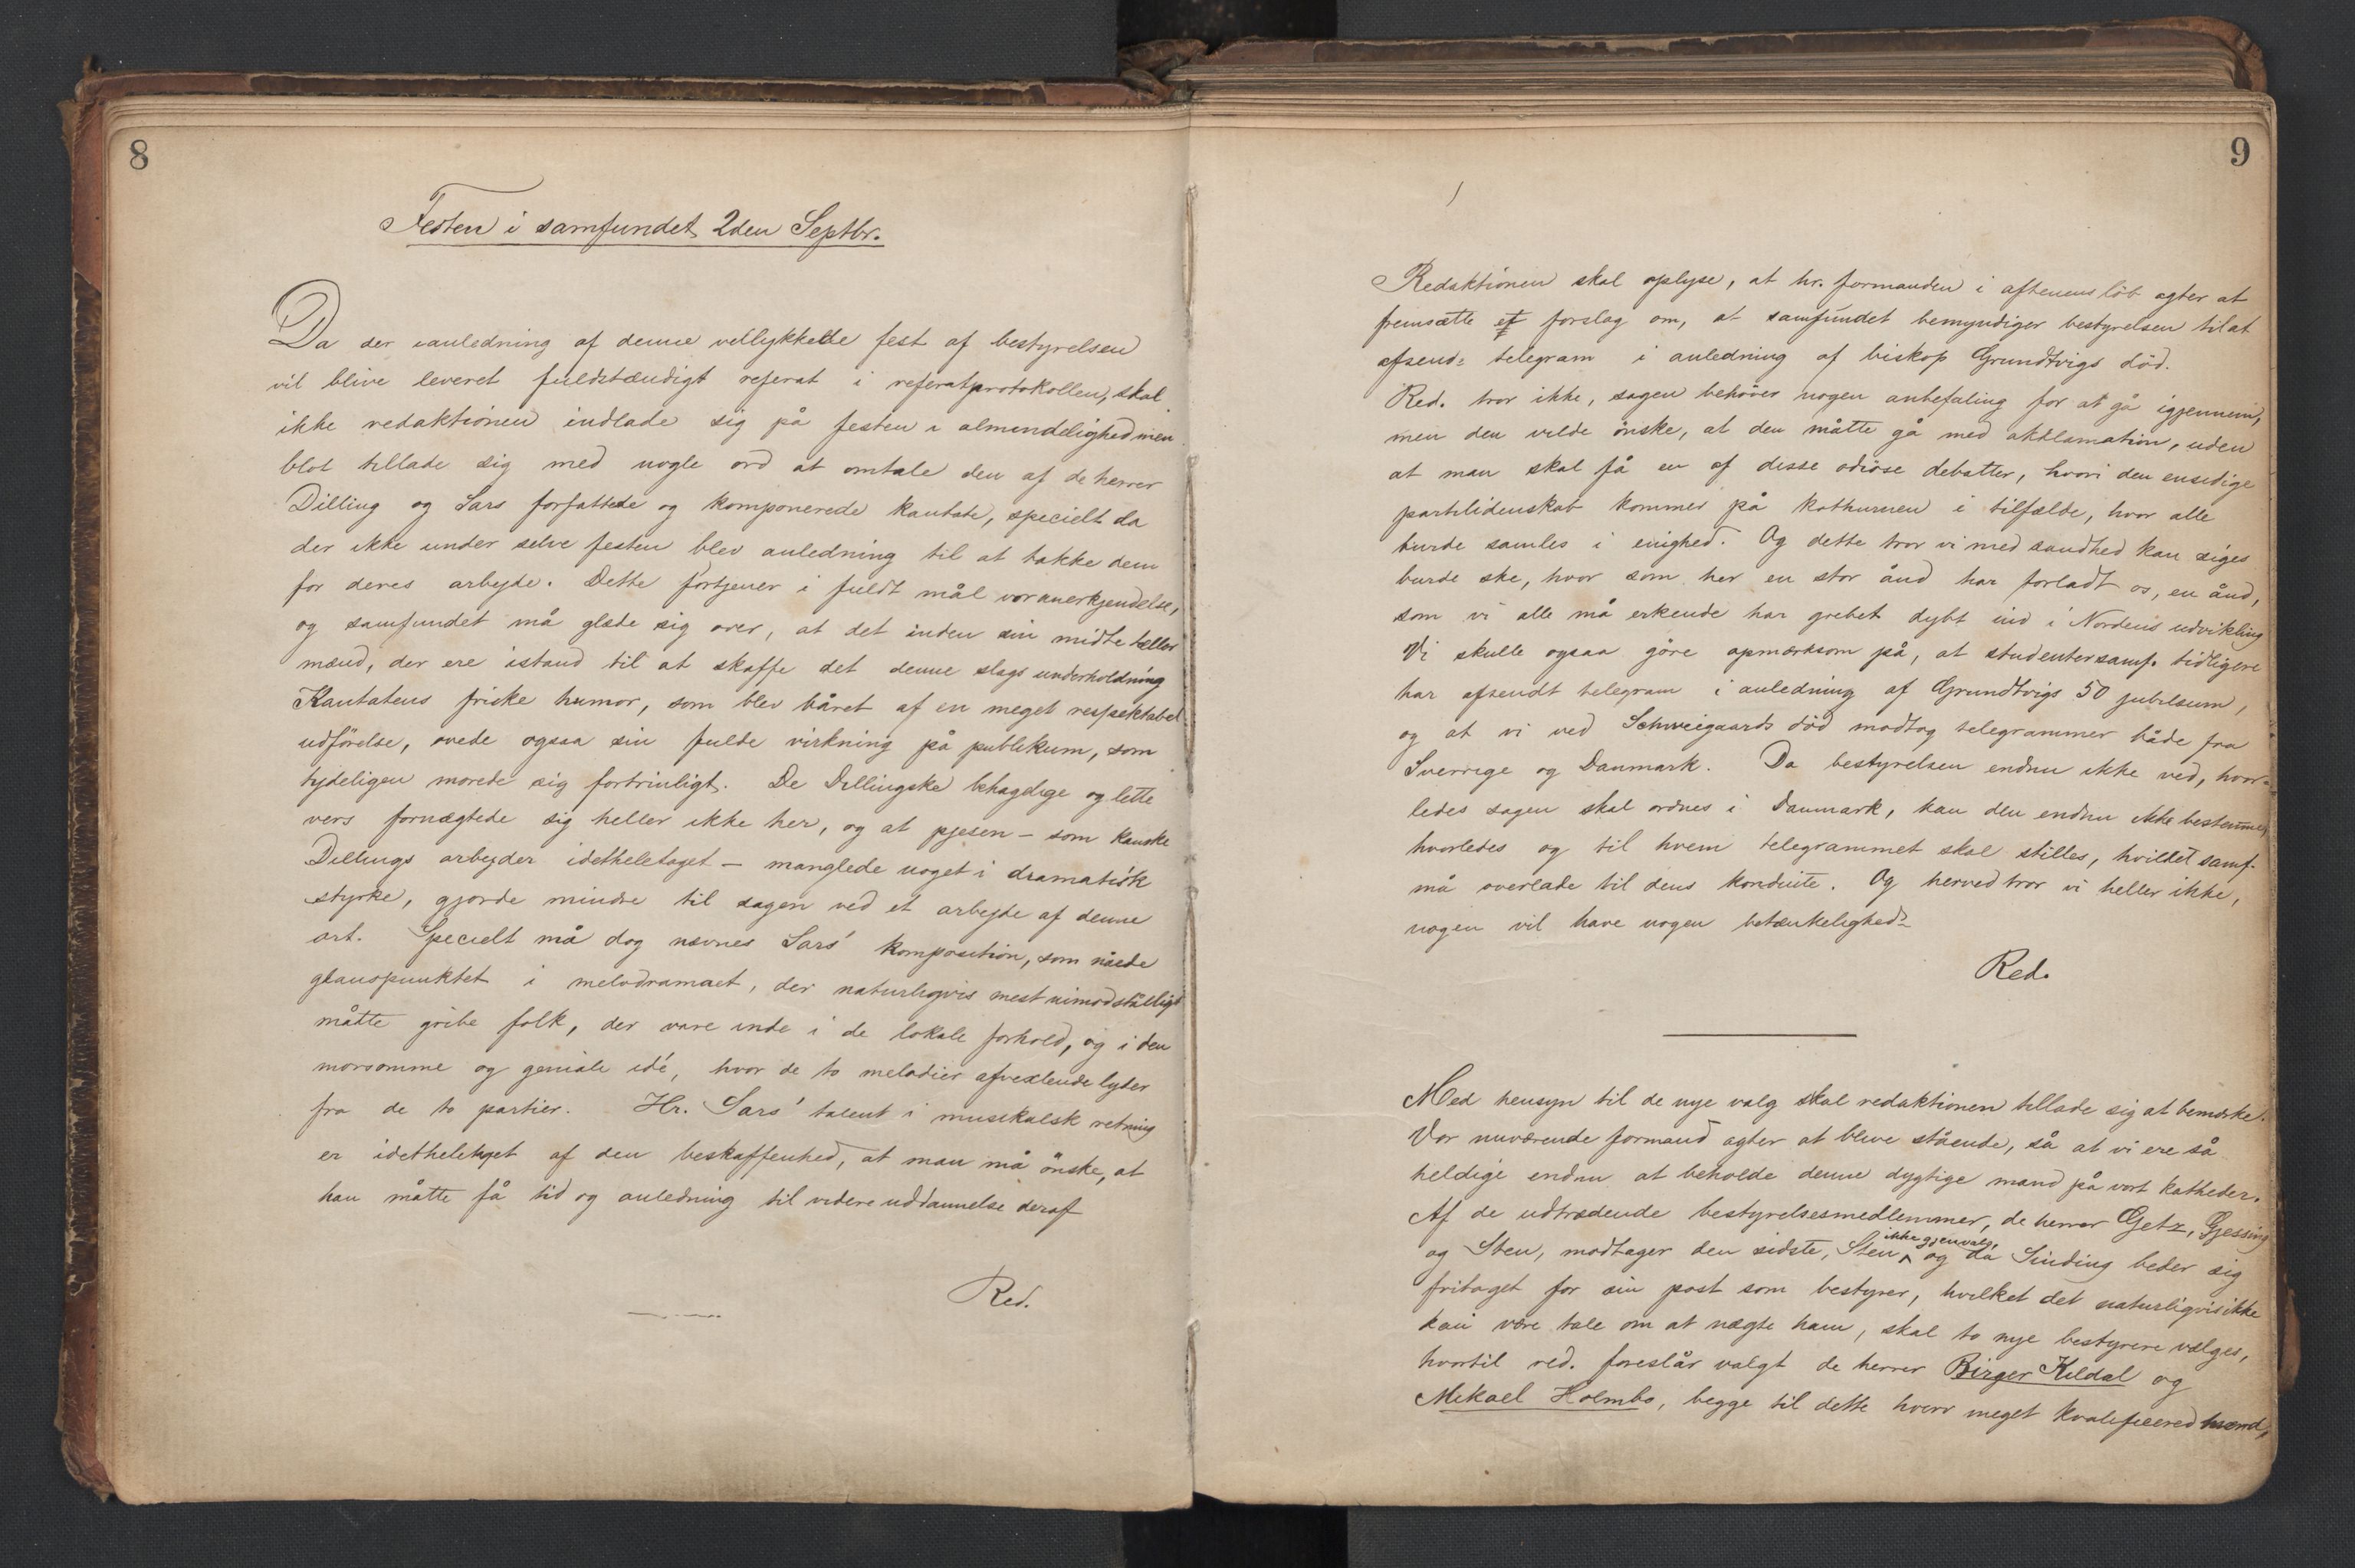 8
Festen i samfundet 2den Septbr.
Da der ianledning af denne vellykkede fest af bestyrelsen
vil blive leveret fuldstændigt referat i referatprotokollen, skal
ikke redaktionen indlade sig på festen i almindelighed men
blot tillade sig med nogle ord at omtale den af de herrer
Dilling og Sars forfattede og komponerede kantate, specielt da
der ikke under selve festen blev anledning til at takke dem
for deres arbejde. Dette fortjener i fuldt mål vor anerkjendelse,
og samfundet må glæde sig over, at det inden sin midte tæller
mænd, der ere istand til at skaffe det denne slags underholdning
Kantatens friske humor, som blev båret af en meget respektabel
udförelse, øvede ogsaa sin fulde virkning på publikum, som
tydeligen morede sig fortrinligt. De Dillingske behagelige og lette
vers fornægtede sig heller ikke her, og at pjesen – som kanske
Dillings arbejder idetheletaget – manglede noget i dramatisk
styrke, gjorde mindre til sagen ved et arbejde af denne
art. Specielt må dog nævnes Sars' komposition, som nåede
glanspunktet i melodramaet, der naturligvis mest uimodståeligt
måtte gribe folk, der vare inde i de lokale forhold, og i den
morsomme og geniale idé, hvor de to melodier afvexlende lyder
fra de to partier. Hr. Sars' talent i musikalsk retning
er idetheletaget af den beskaffenhed, at man må önske, at
han måtte få tid og anledning til videre uddannelse deraf
Red.
9
Redaktionen skal oplyse, at hr. formanden i aftenens löb agter at
fremsætte et forslag om, at samfundet bemyndiger bestyrelsen til at
afsende telegram i anledning af biskop Grundtvigs död.
Red. tror ikke, sagen behöver nogen anbefaling for at gå igjennem,
men den vilde önske, at den måtte gå med akklamation, uden
at man skal få en af disse odiöse debatter, hvori den ensidige
partilidenskab kommer på kothurnen i tilfælde, hvor alle
burde samles i enighed. Og dette tror vi med sandhed kan siges
burde ske, hvor som her en stor ånd har forladt os, en ånd,
som vi alle må erkende har grebet dybt ind i Nordens udvikling
Vi skulle ogsaa göre opmærksom på, at studentersamf. tidligere
har afsendt telegram i anledning af Grundtvigs 50 jubilæum,
og at vi ved Schweigaards död modtog telegrammer både fra
Sverrige og Danmark. Da bestyrelsen endnu ikke ved, hvor-
ledes sagen skal ordnes i Danmark, kan den endnu ikke bestemme,
hvorledes og til hvem telegrammet skal stilles, hvilket samf.
må overlade til dens konduite. Og herved tror vi heller ikke,
nogen vil have nogen betænkelighed.
Red.
Med hensyn til de nye valg skal redaktionen tillade sig at bemærke.
Vor nuværende formand agter at blive stående, så at vi ere så
heldige endnu at beholde denne dygtige mand på vort katheder.
Af de udtrædende bestyrelsesmedlemmer, de herrer Getz, Gjessing
og Sten, modtager den sidste, Sten ikke gjenvalg, og da Sinding beder sig
fritaget for sin post som bestyrer, hvilket det naturligvis ikke
kan være tale om at nægte ham, skal to nye bestyrere vælges,
hvortil red. foreslår valgt de herrer Birger Kildal og
Mikael Holmbo, begge til dette hverv meget kvalificered mænd,